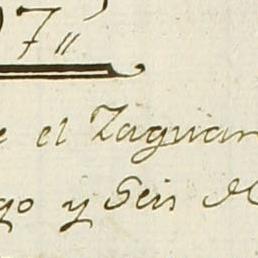 97
e el Zaguan
go y Seis